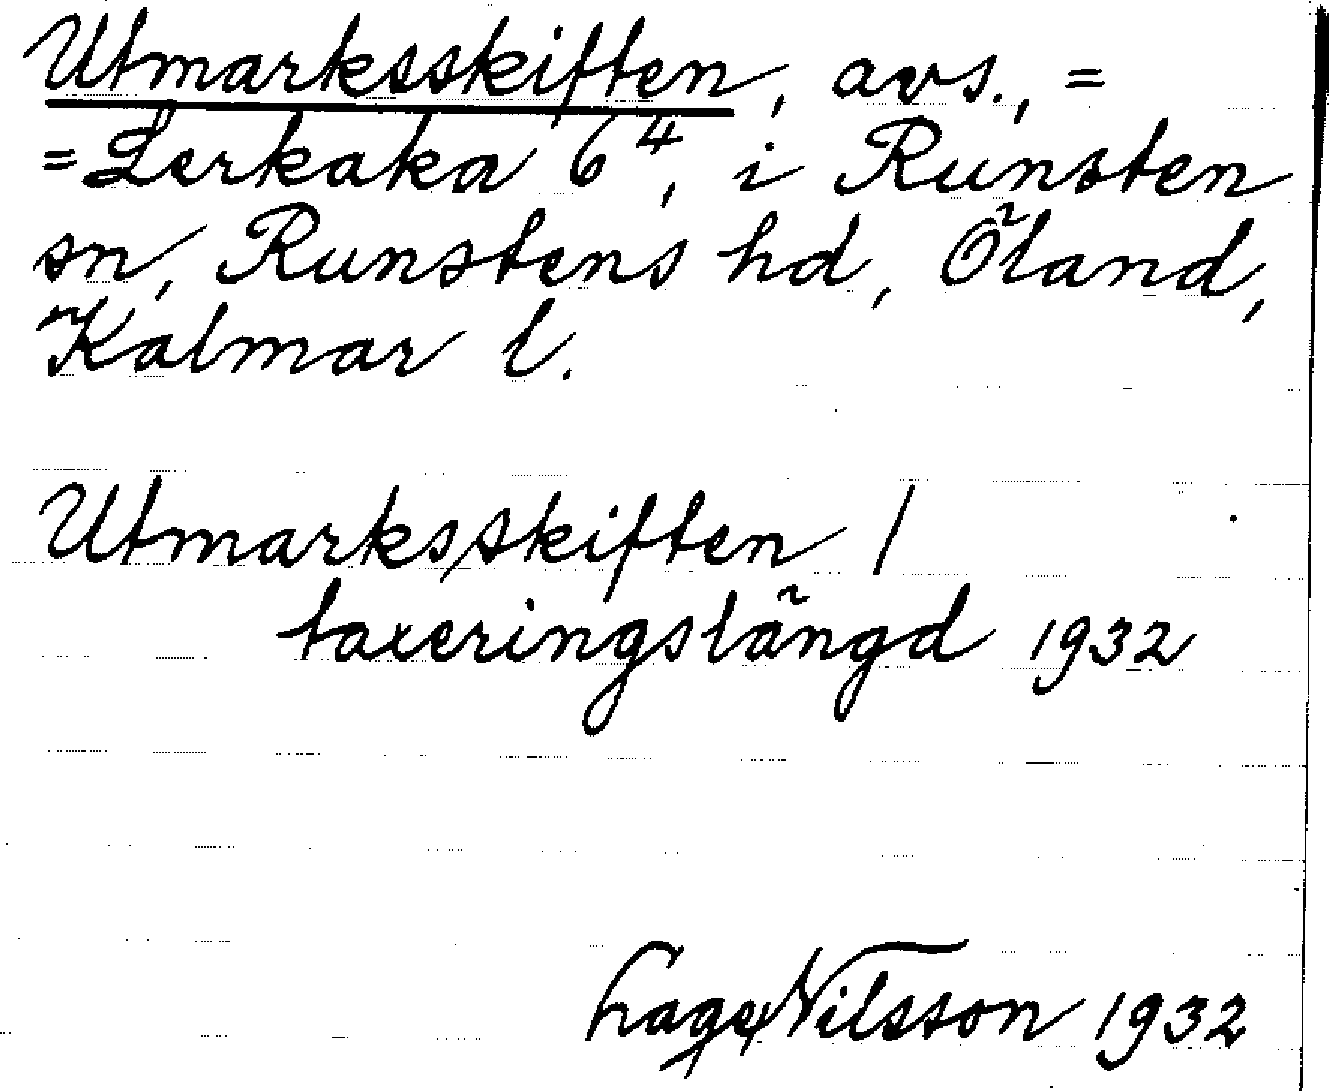 Utmarksskiften, avs., =
= Lerkaka 6⁴, i Runsten
sn, Runstens hd, Öland,
Kalmar l.
Utmarksskiften /
taxeringslängd 1932
Nilsson 1932